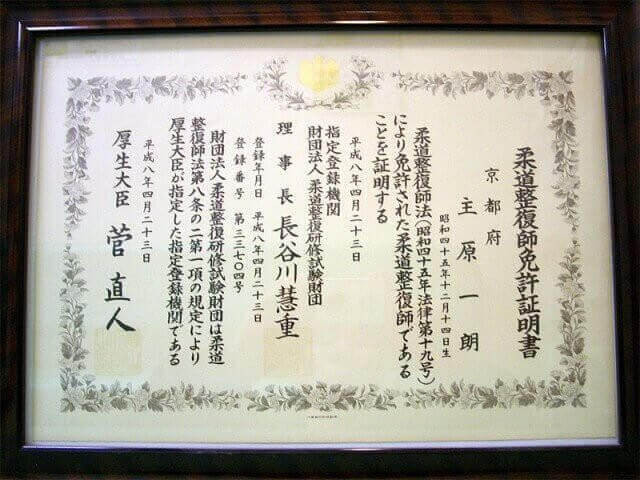 柔道整復師免許証明書
京都府
主原一朗
昭和四十五年十二月十四日生
柔道整復師法(昭和四十五年法律第十九号)
により免許された柔道整復師である
ことを証明する
平成八年四月二十三日
指定登録機関
財団法人柔道整復研修試験財団
理事長 長谷川慧重
登録年月日 平成八年四月二十三日
登録番号 第三三七〇四号
財団法人柔道整復研修試験財団は柔道
整復師法第八条の二第一項の規定により
厚生大臣が指定した指定登録機関である
平成八年四月二十三日
厚生大臣 菅直人